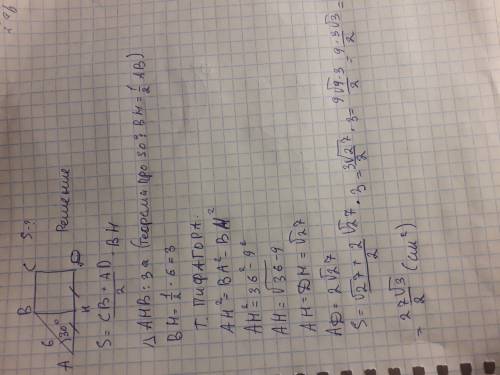 B C S-?
6
30°
A H D
Решение
S = CB + AD / 2 · BH
△ AHB: за (теорема про 30°: BH = 1/2 AB)
BH = 1/2 · 6 = 3
Т. ПИФАГОРА.
AH² = BA² - BH²
AH² = 36² - 9²
AH = √36 - 9
AH = DH = √27
AD = 2√27
S = √27 + 2√27 / 2 · 3 = 3√27 / 2 · 3 = 9√9·3 / 2 = 9·3√3 / 2 =
= 27√3 / 2 (см²)